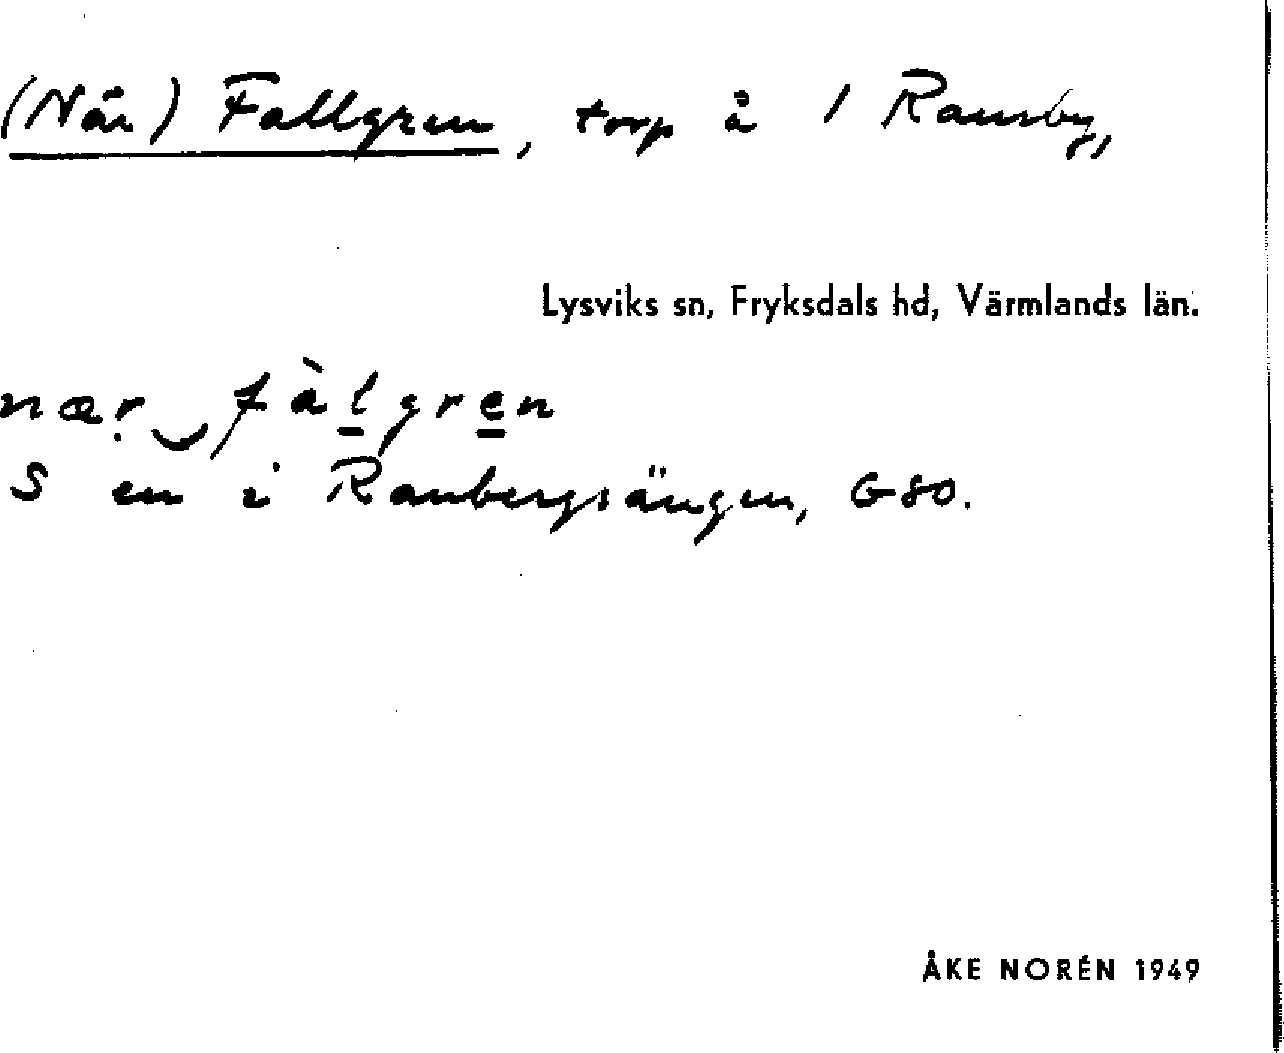 (När) Fallgren, torp å 1 Ransby,
Lysviks sn, Fryksdals hd, Värmlands län.
nær‿fàlgren
S em i Ranbergsängen, GSO.
ÅKE NORÉN 1949